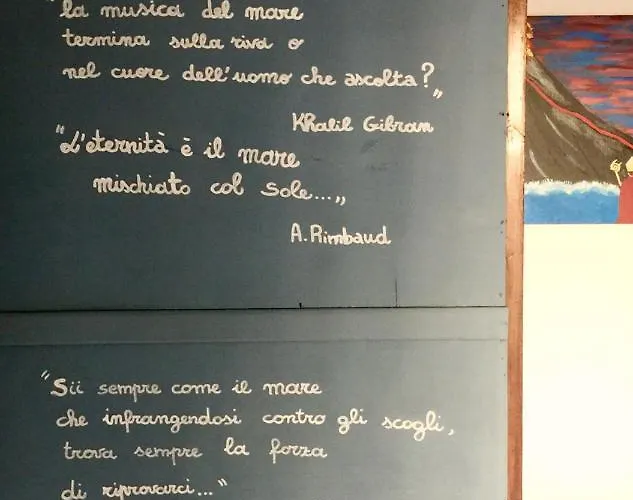 "la musica del mare
termina sulla riva o
nel cuore dell'uomo che ascolta?"
Khalil Gibran
"L'eternità è il mare
mischiato col sole..."
A. Rimbaud
"Sii sempre come il mare
che infrangendosi contro gli scogli,
trova sempre la forza
di riprovarci..."